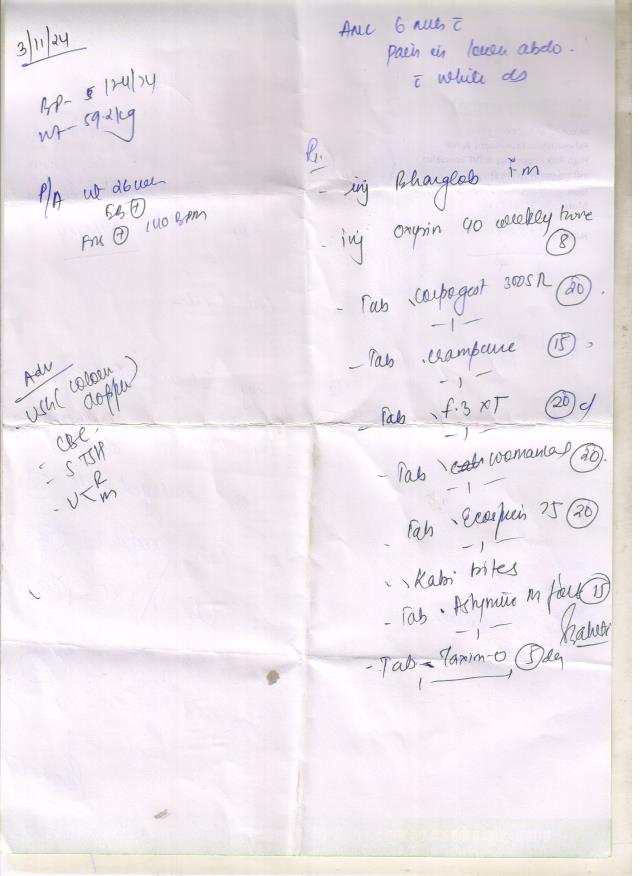 3/11/24
BP- 124/74
Wt- 59.2kg
P/A ut 26 week
FM (+)
FHS (+) 140 BPM
Adv
- USG (colour doppler)
- CBC
- S TSH
- U < R M
ANC 6 mths c̄
pain in lower abdo.
c̄ white ds
Rx.
- inj I-m
- inj 40 weekly twice (8)
- Tab 300SR (20).
-1-
- Tab (15)
-1-
- Tab f.3 XT (20)
-1-
- Tab (20).
-1-
- Tab Ecosprin 75 (20)
-1-
- Kabi bites
- Tab. Astymin M forte (15)
-1-
- Tab - Taxim-O (5) day